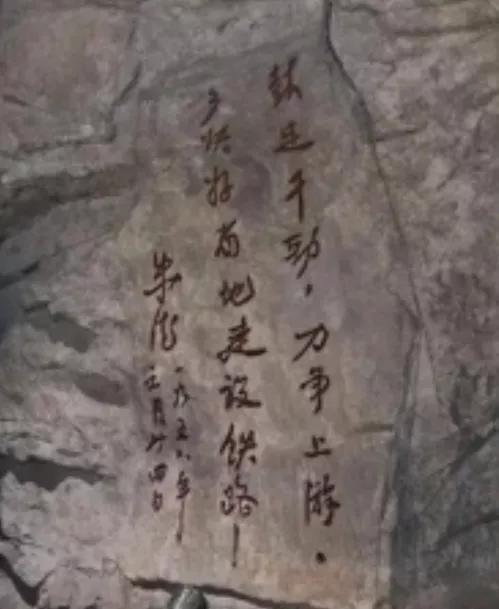 鼓足干劲，力争上游，
多快好省地建设铁路！
朱德
一九五八年
三月廿四日